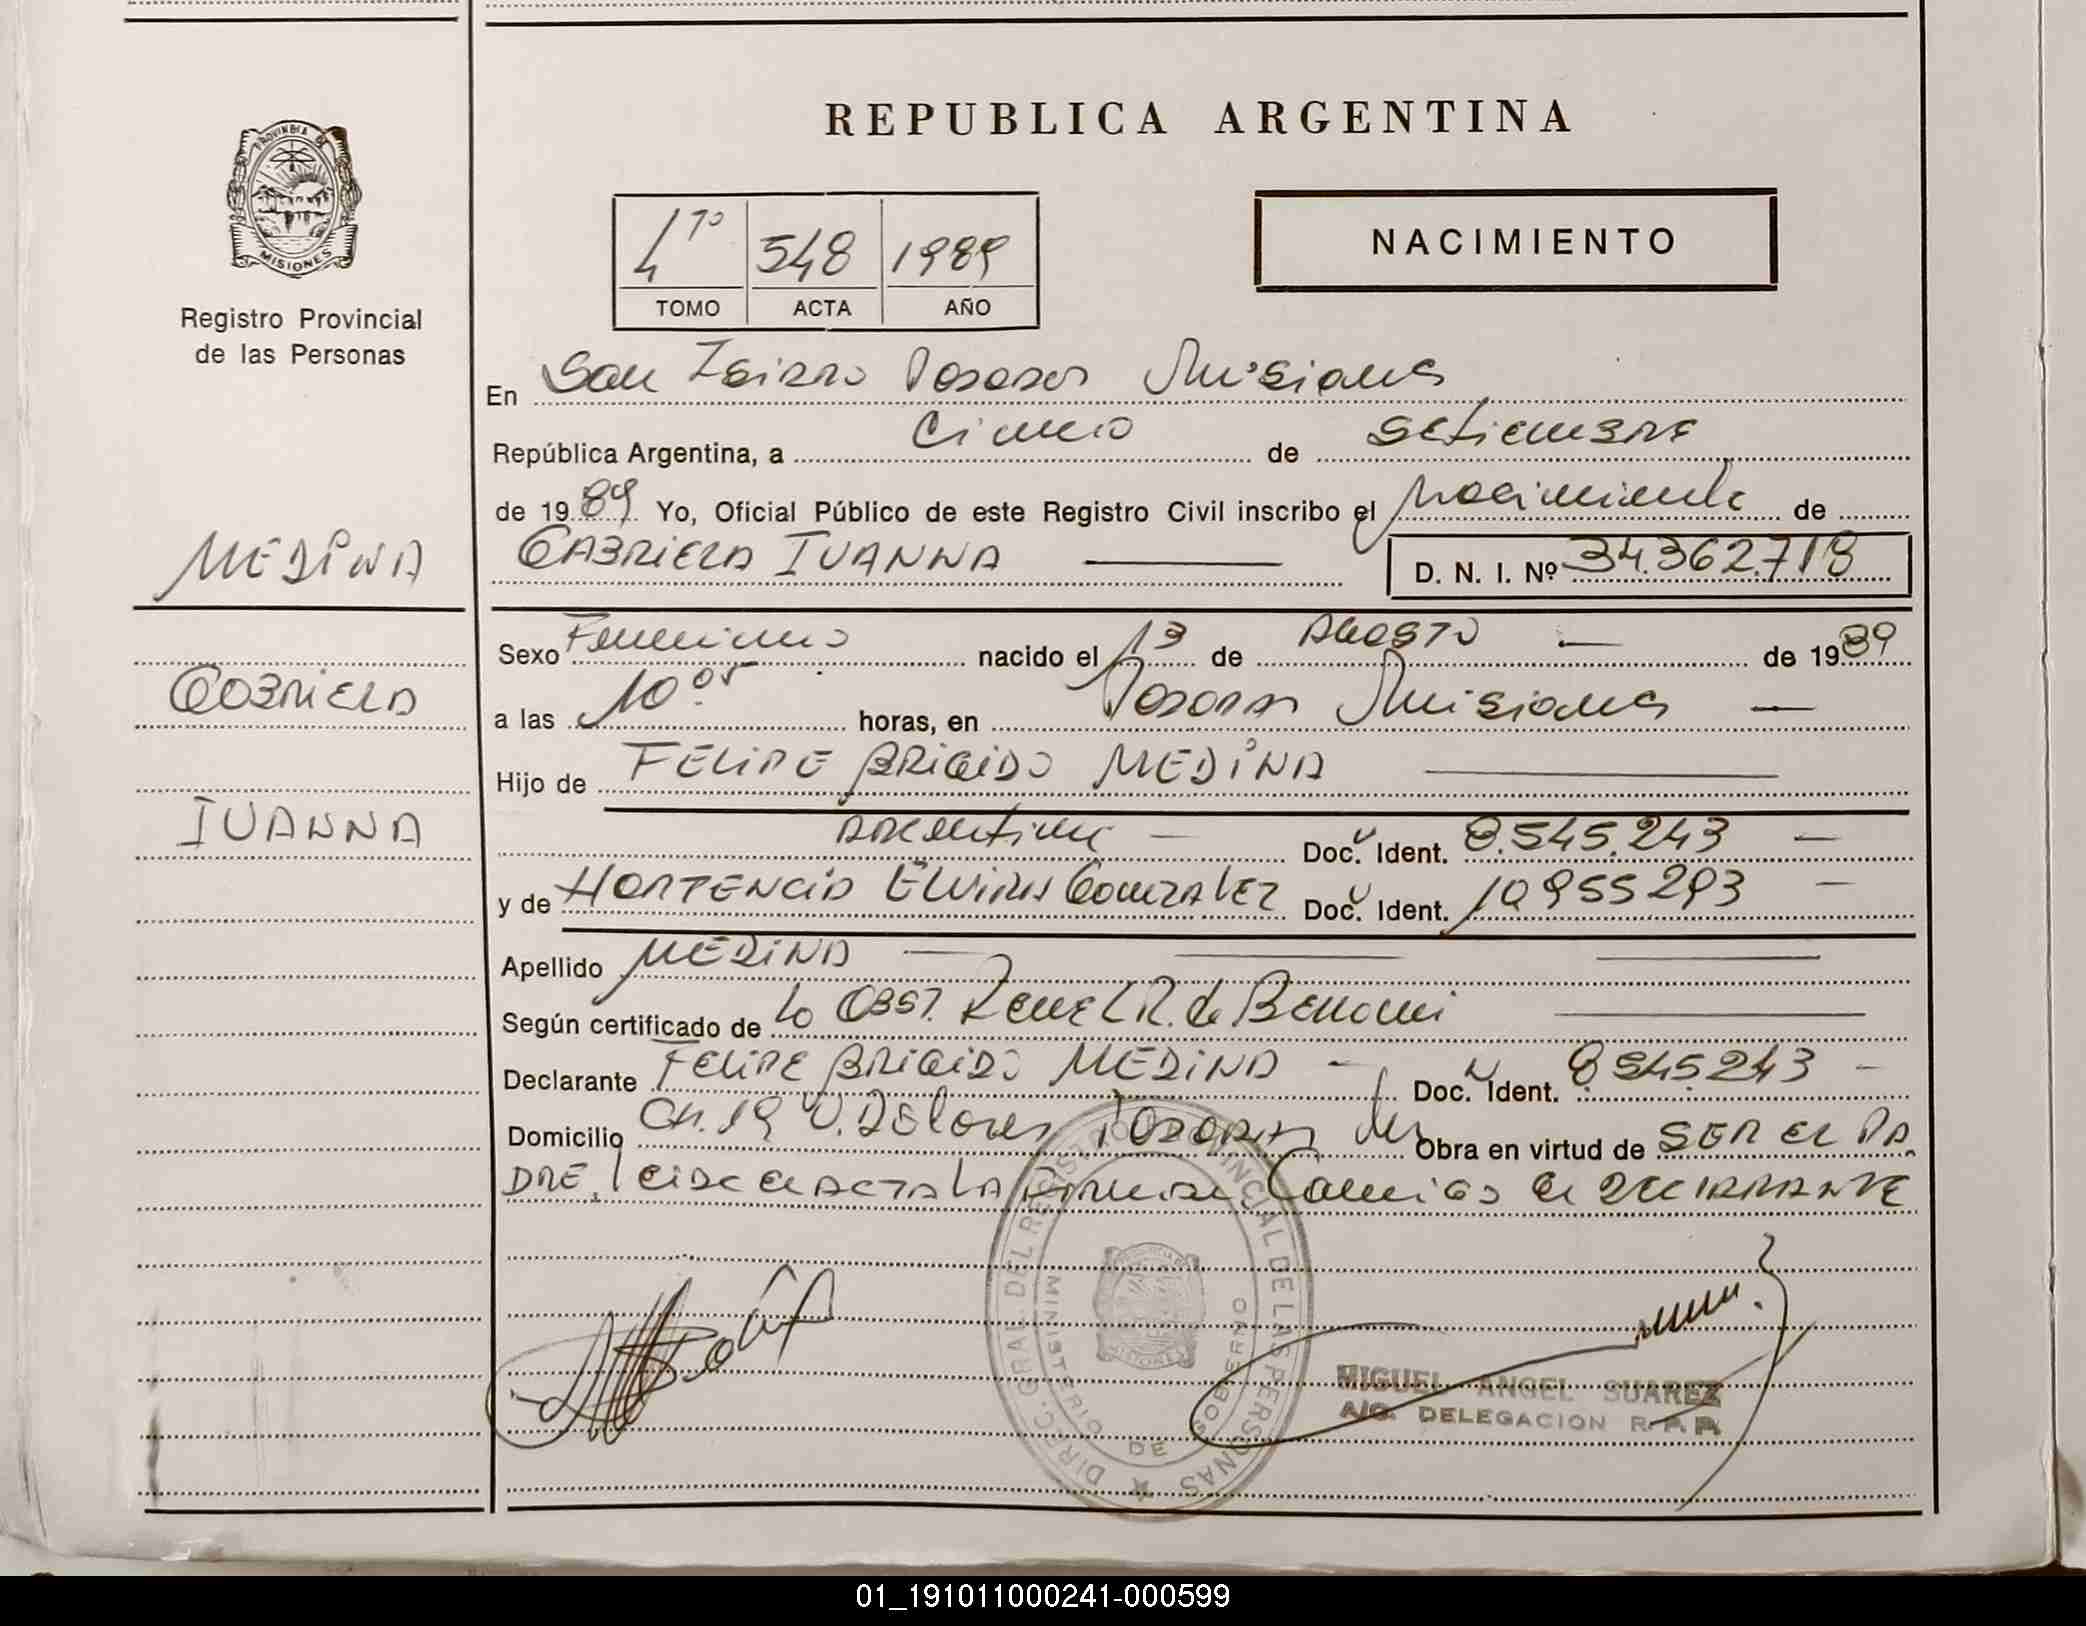 REPUBLICA ARGENTINA
PROVINCIA DE
MISIONES
Registro Provincial
de las Personas
4to 548 1989
TOMO ACTA AÑO
NACIMIENTO
En San Isidro Posadas Misiones
República Argentina, a Cinco de Setiembre
de 1989 Yo, Oficial Público de este Registro Civil inscribo el Nacimiento de
GABRIELA IVANNA D. N. I. Nº 34.362.718
MEDINA
GABRIELA
IVANNA
Sexo Femenino nacido el 13 de AGOSTO de 1989
a las 10:05 horas, en Posadas Misiones
Hijo de FELIPE BRIGIDO MEDINA
Argentino Doc. Ident. 8.545.243
y de HORTENCIA ELVIRA GONZALEZ Doc. Ident. 10955293
Apellido MEDINA
Según certificado de la Obst. Rene L R. de
Declarante FELIPE BRIGIDO MEDINA Doc. Ident. 8545243
Domicilio CH. 19 V. Dolores Posadas Obra en virtud de SER EL PA
DRE, leida el acta la firma Conmigo el DECLARANTE
DIREC. GRAL. DEL REGISTRO PROVINCIAL DE LAS PERSONAS
MINISTERIO DE GOBIERNO
MIGUEL ANGEL SUAREZ
A/C. DELEGACION R. P. P.
01_191011000241-000599